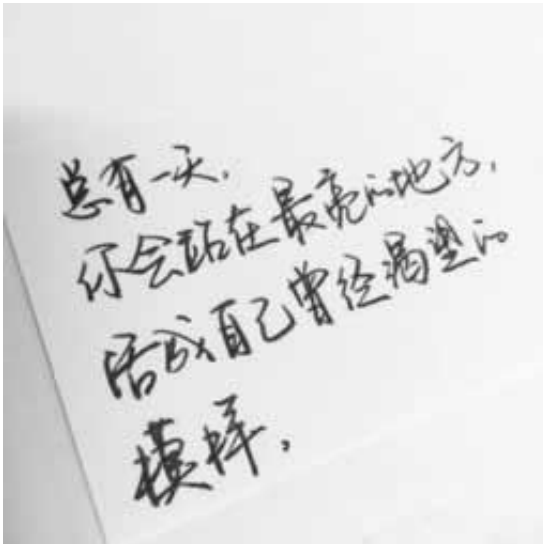 总有一天.
你会站在最亮的地方,
活成自己曾经渴望的
模样,